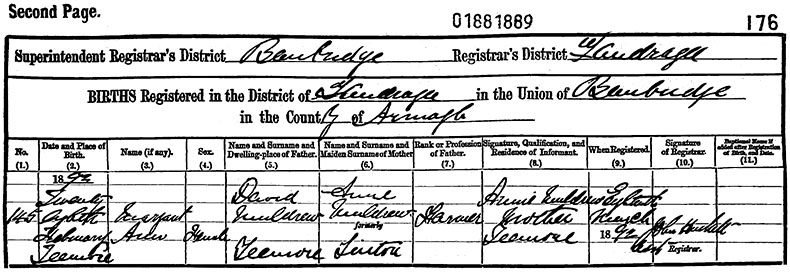 Second Page.
01881889
176
Superintendent Registrar's District Banbridge Registrar's District Tandragee
BIRTHS Registered in the District of Tandragee in the Union of Banbridge
in the County of Armagh
No. (1.)
Date and Place of Birth. (2.)
Name (if any). (3.)
Sex. (4.)
Name and Surname and Dwelling-place of Father. (5.)
Name and Surname and Maiden Surname of Mother (6.)
Rank or Profession of Father. (7.)
Signature, Qualification, and Residence of Informant. (8.)
When Registered. (9.)
Signature of Registrar. (10.)
Baptismal Name if added after Registration of Birth, and Date. (11.)
145
1892
Twenty
eighth
February
Teemore
Margaret
Ann
Female
David
Muldrew
Teemore
Anne
Muldrew
formerly
Linton
Farmer
Annie Muldrew
Mother
Teemore
Eighth
March
1892
John
Registrar.